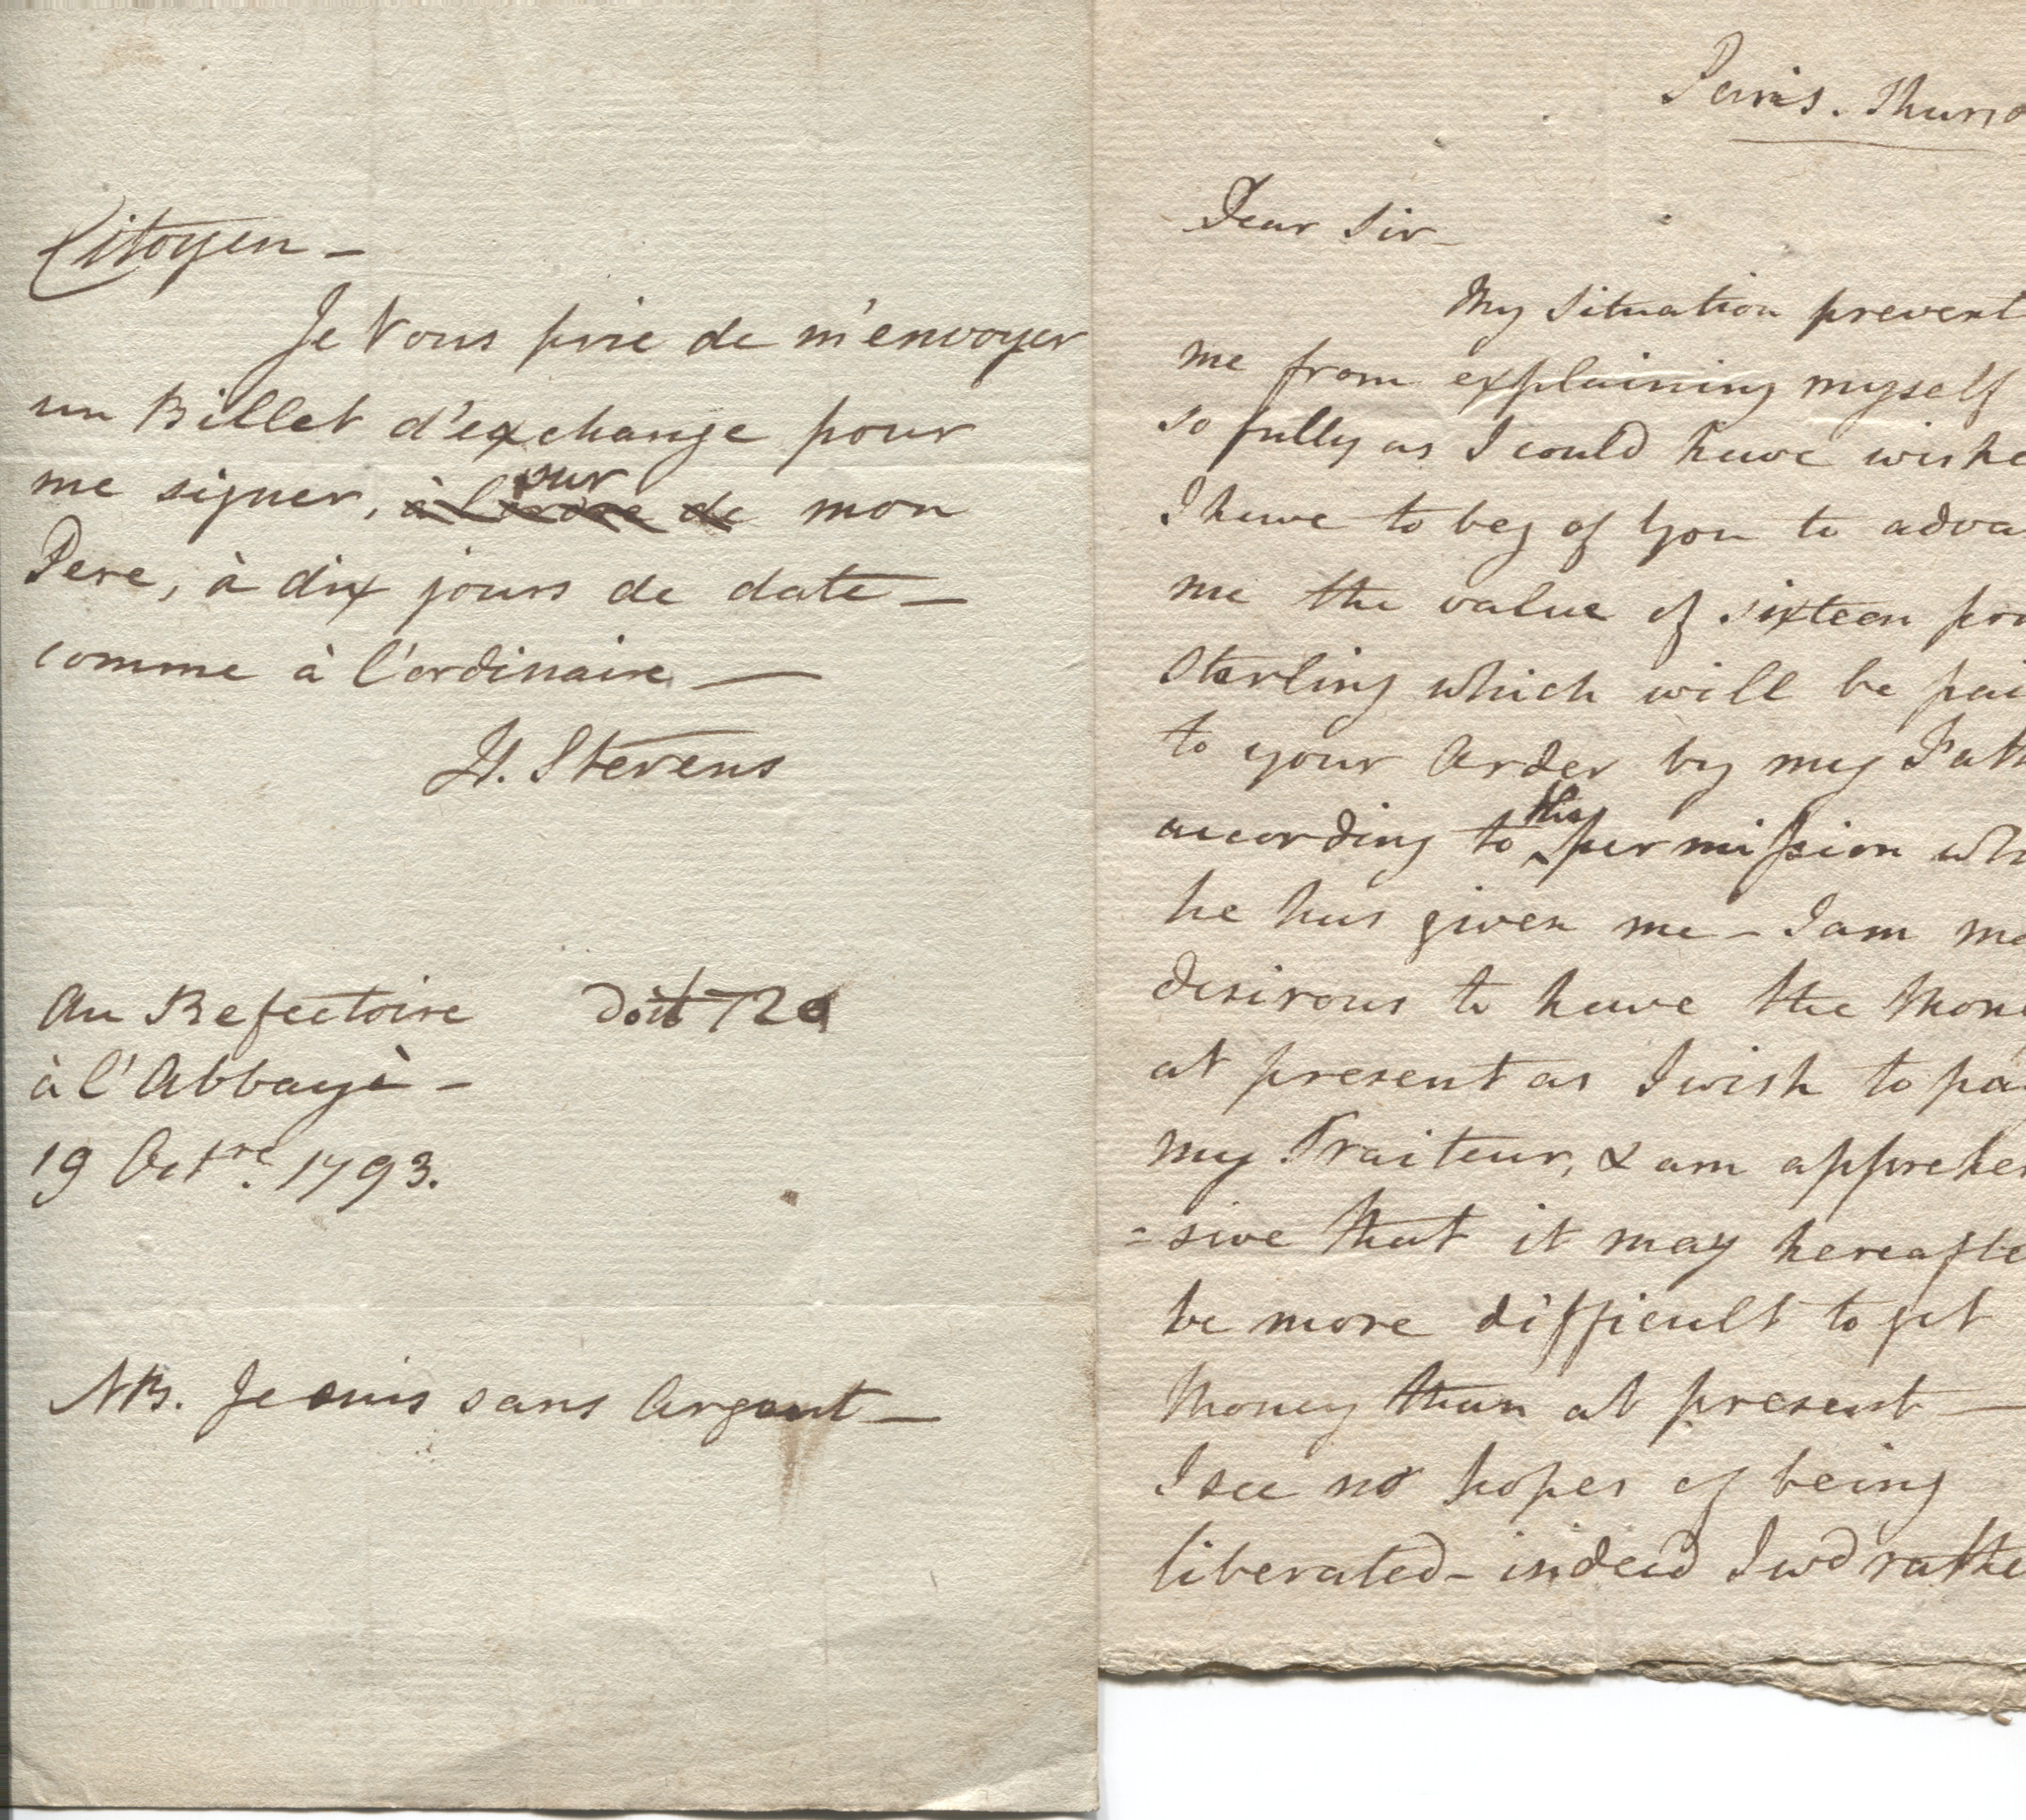 Citoyen -
Je Vous prie de m'envoyer
un Billet d'exchange pour
me signer, à l'ordre de sur mon
Pere, à dix jours de date -
comme à l'ordinaire. —
H. Stevens
Au Refectoire doit 720
à l'Abbayè -
19 Octre. 1793.
NB. Je suis sans Argent -
Paris. Thursd
Dear Sir -
My Situation prevent
me from explaining myself
so fully as I could have wishe
I have to beg of You to adva
me the value of sixteen pou
Sterling which will be pai
to your Order by my Fath
according to the permission whi
he has given me - I am mo
desirous to have the Mone
at present as I wish to pa
my Traiteur, & am apprehen
=sive that it may hereafte
be more difficult to get
Money than at present —
I see no hopes of being
liberated - indeed I wd rathe